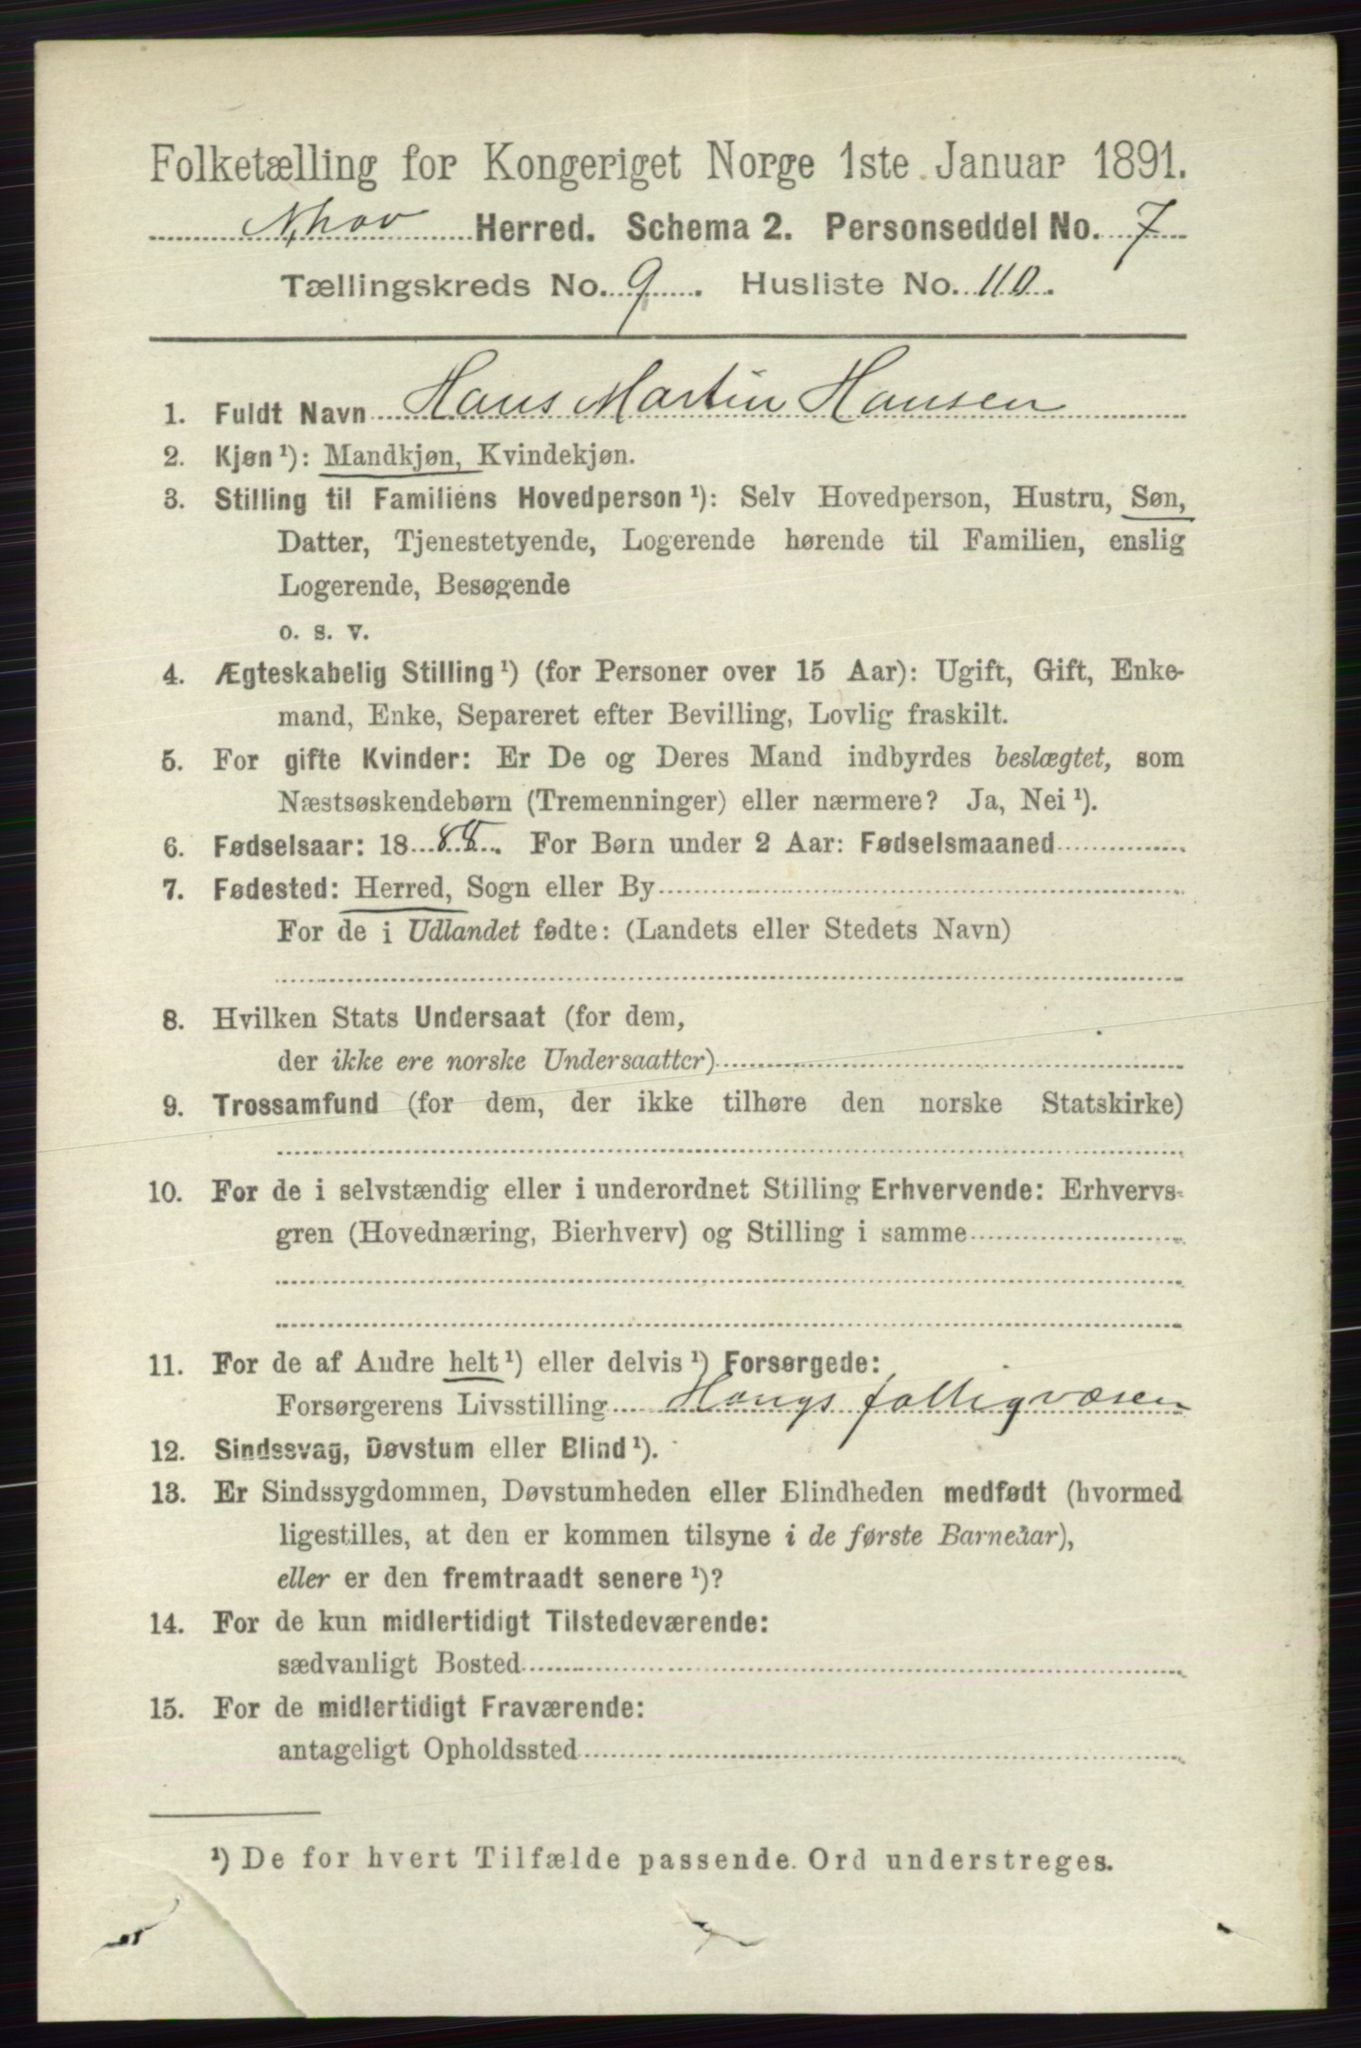 Folketælling for Kongeriget Norge 1ste Januar 1891.
Herred. Schema 2. Personseddel No. 7
Tællingskreds No. 9. Husliste No. 110.
1. Fuldt Navn Hans Martin Hansen
2. Kjøn ¹): Mandkjøn, Kvindekjøn.
3. Stilling til Familiens Hovedperson ¹): Selv Hovedperson, Hustru, Søn,
Datter, Tjenestetyende, Logerende hørende til Familien, enslig
Logerende, Besøgende
o. s. v.
4. Ægteskabelig Stilling ¹) (for Personer over 15 Aar): Ugift, Gift, Enke-
mand, Enke, Separeret efter Bevilling, Lovlig fraskilt.
5. For gifte Kvinder: Er De og Deres Mand indbyrdes beslægtet, som
Næstsøskendebørn (Tremenninger) eller nærmere? Ja, Nei ¹).
6. Fødselsaar: 1888. For Børn under 2 Aar: Fødselsmaaned
7. Fødested: Herred, Sogn eller By
For de i Udlandet fødte: (Landets eller Stedets Navn)
8. Hvilken Stats Undersaat (for dem,
der ikke ere norske Undersaatter)
9. Trossamfund (for dem, der ikke tilhøre den norske Statskirke)
10. For de i selvstændig eller i underordnet Stilling Erhvervende: Erhvervs-
gren (Hovednæring, Bierhverv) og Stilling i samme
11. For de af Andre helt ¹) eller delvis ¹) Forsørgede:
Forsørgerens Livsstilling fattigvæsen
12. Sindssvag, Døvstum eller Blind ¹).
13. Er Sindssygdommen, Døvstumheden eller Blindheden medfødt (hvormed
ligestilles, at den er kommen tilsyne i de første Barneaar),
eller er den fremtraadt senere ¹)?
14. For de kun midlertidigt Tilstedeværende:
sædvanligt Bosted
15. For de midlertidigt Fraværende:
antageligt Opholdssted
¹) De for hvert Tilfælde passende Ord understreges.